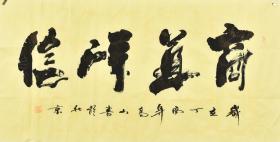 商道酬信
歲在丁酉年山書於北京